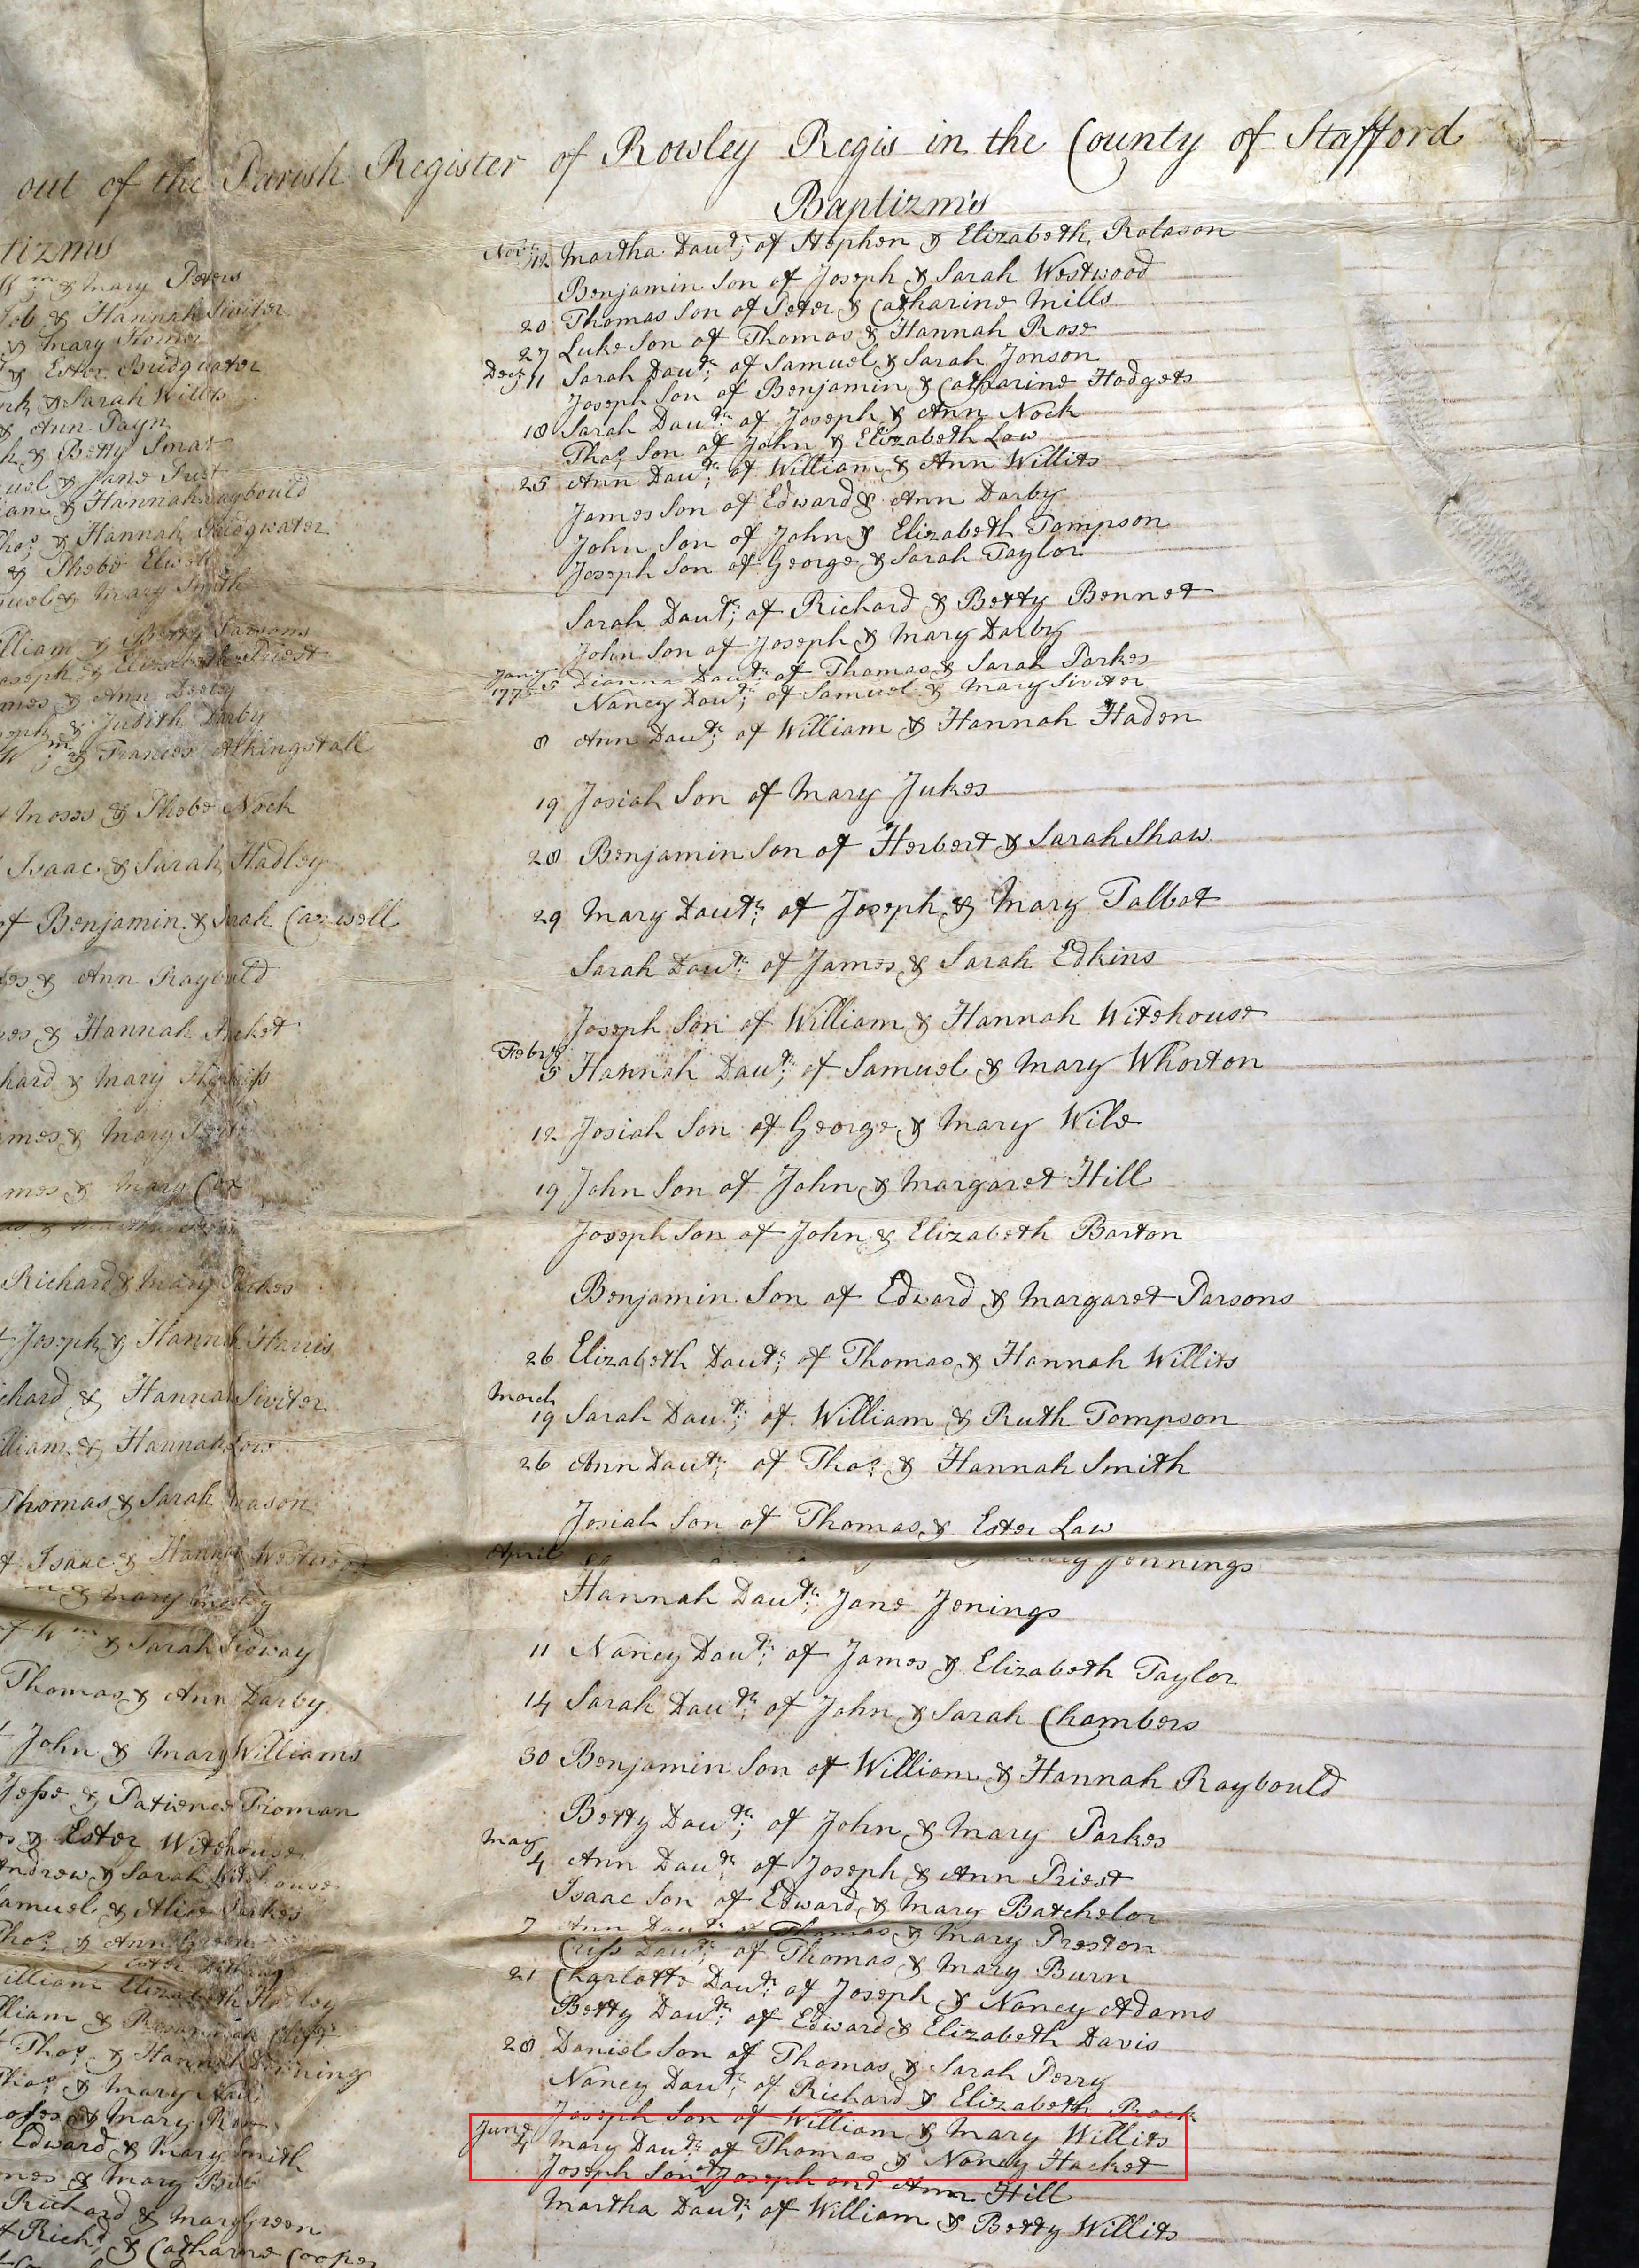 out of the Parish Register of Rowley Regis in the County of Stafford
tizms
Wm & Mary Peters
Job & Hannah Siviter
& Mary Homer
& Ester Bridgwater
& Sarah Willits
& Ann Payn
& Betty Smart
& Jane
& Hannah Raybould
Thos; & Hannah Bridgwater
& Phebe Elwell
& Mary Smith
William & Betty Parsons
Joseph & Elizabeth Priest
& Ann Darby
& Judith Darby
Wm; & Frances Alkingstall
Moses & Phebe Nock
Isaac & Sarah Hadley
of Benjamin & Sarah Careswell
& Ann Raybould
& Hannah
& Mary
& Mary
& Mary Cox
Richard & Mary Parkes
Joseph & Hannah Harris
Richard & Hannah Siviter
William & Hannah Low
Thomas & Sarah Mason
of Isaac & Hannah Westwood
& Mary
of Wm & Sarah Sidway
Thomas & Ann Darby
John & Mary Williams
Jesse & Patience Troman
& Ester Witehouse
Andrew & Sarah Witehouse
Samuel & Alice Parkes
Thos; & Ann Green
William Elizabeth Hadley
William & Rosannah
Thos; & Hannah
Thos; & Mary
Moses & Mary
Edward & Mary Smith
& Mary
Richard & Mary Green
of Richd; & Catharine Cooper
Baptizm's
Novr; 12 Martha Daut:r; of Stephen & Elizabeth Rolason
Benjamin Son of Joseph & Sarah Westwood
20 Thomas Son of Peter & Catharine Mills
27 Luke Son of Thomas & Hannah Rose
Decr; 11 Sarah Daut:r; of Samuel & Sarah Jonson
Joseph Son of Benjamin & Catharine Hodgets
18 Sarah Daut:r; of Joseph & Ann Nock
Thos; Son of John & Elizabeth Low
25 Ann Daut:r; of William & Ann Willits
James Son of Edward & Ann Darby
John Son of John & Elizabeth Tompson
Joseph Son of George & Sarah Taylor
Sarah Daut:r; of Richard & Betty Bennet
John Son of Joseph & Mary Darby
Jany 1775 5 Dianna Daut:r; of Thomas & Sarah Parkes
Nancy Daut:r; of Samuel & Mary Siviter
8 Ann Daut:r; of William & Hannah Haden
19 Josiah Son of Mary Jukes
28 Benjamin Son of Herbert & Sarah Shaw
29 Mary Daut:r; of Joseph & Mary Talbot
Sarah Daut:r; of James & Sarah Edkins
Joseph Son of William & Hannah Witehouse
Febry 5 Hannah Daut:r; of Samuel & Mary Whorton
12 Josiah Son of George & Mary Wile
19 John Son of John & Margaret Hill
Joseph Son of John & Elizabeth Barton
Benjamin Son of Edward & Margaret Parsons
26 Elizabeth Daut:r; of Thomas & Hannah Willits
March 19 Sarah Daut:r; of William & Ruth Tompson
26 Ann Daut:r; of Thos; & Hannah Smith
Josiah Son of Thomas & Ester Law
April Jennings
Hannah Daut:r; Jane Jenings
11 Nancy Daut:r; of James & Elizabeth Taylor
14 Sarah Daut:r; of John & Sarah Chambers
30 Benjamin Son of William & Hannah Raybould
Betty Daut:r; of John & Mary Parkes
May 4 Ann Daut:r; of Joseph & Ann Priest
Isaac Son of Edward & Mary Batchelor
7 Ann Daut:r; of Thomas & Mary Preston
Criss Daut:r; of Thomas & Mary Burn
21 Charlotte Daut:r; of Joseph & Nancy Adams
Betty Daut:r; of Edward & Elizabeth Davis
28 Daniel Son of Thomas & Sarah Perry
Nancy Daut:r; of Richard & Elizabeth Rock
Joseph Son of William & Mary Willits
June 4 Mary Daut:r; of Thomas & Nancy Hacket
Joseph Son of Joseph and Ann Hill
Martha Daut:r; of William & Betty Willits